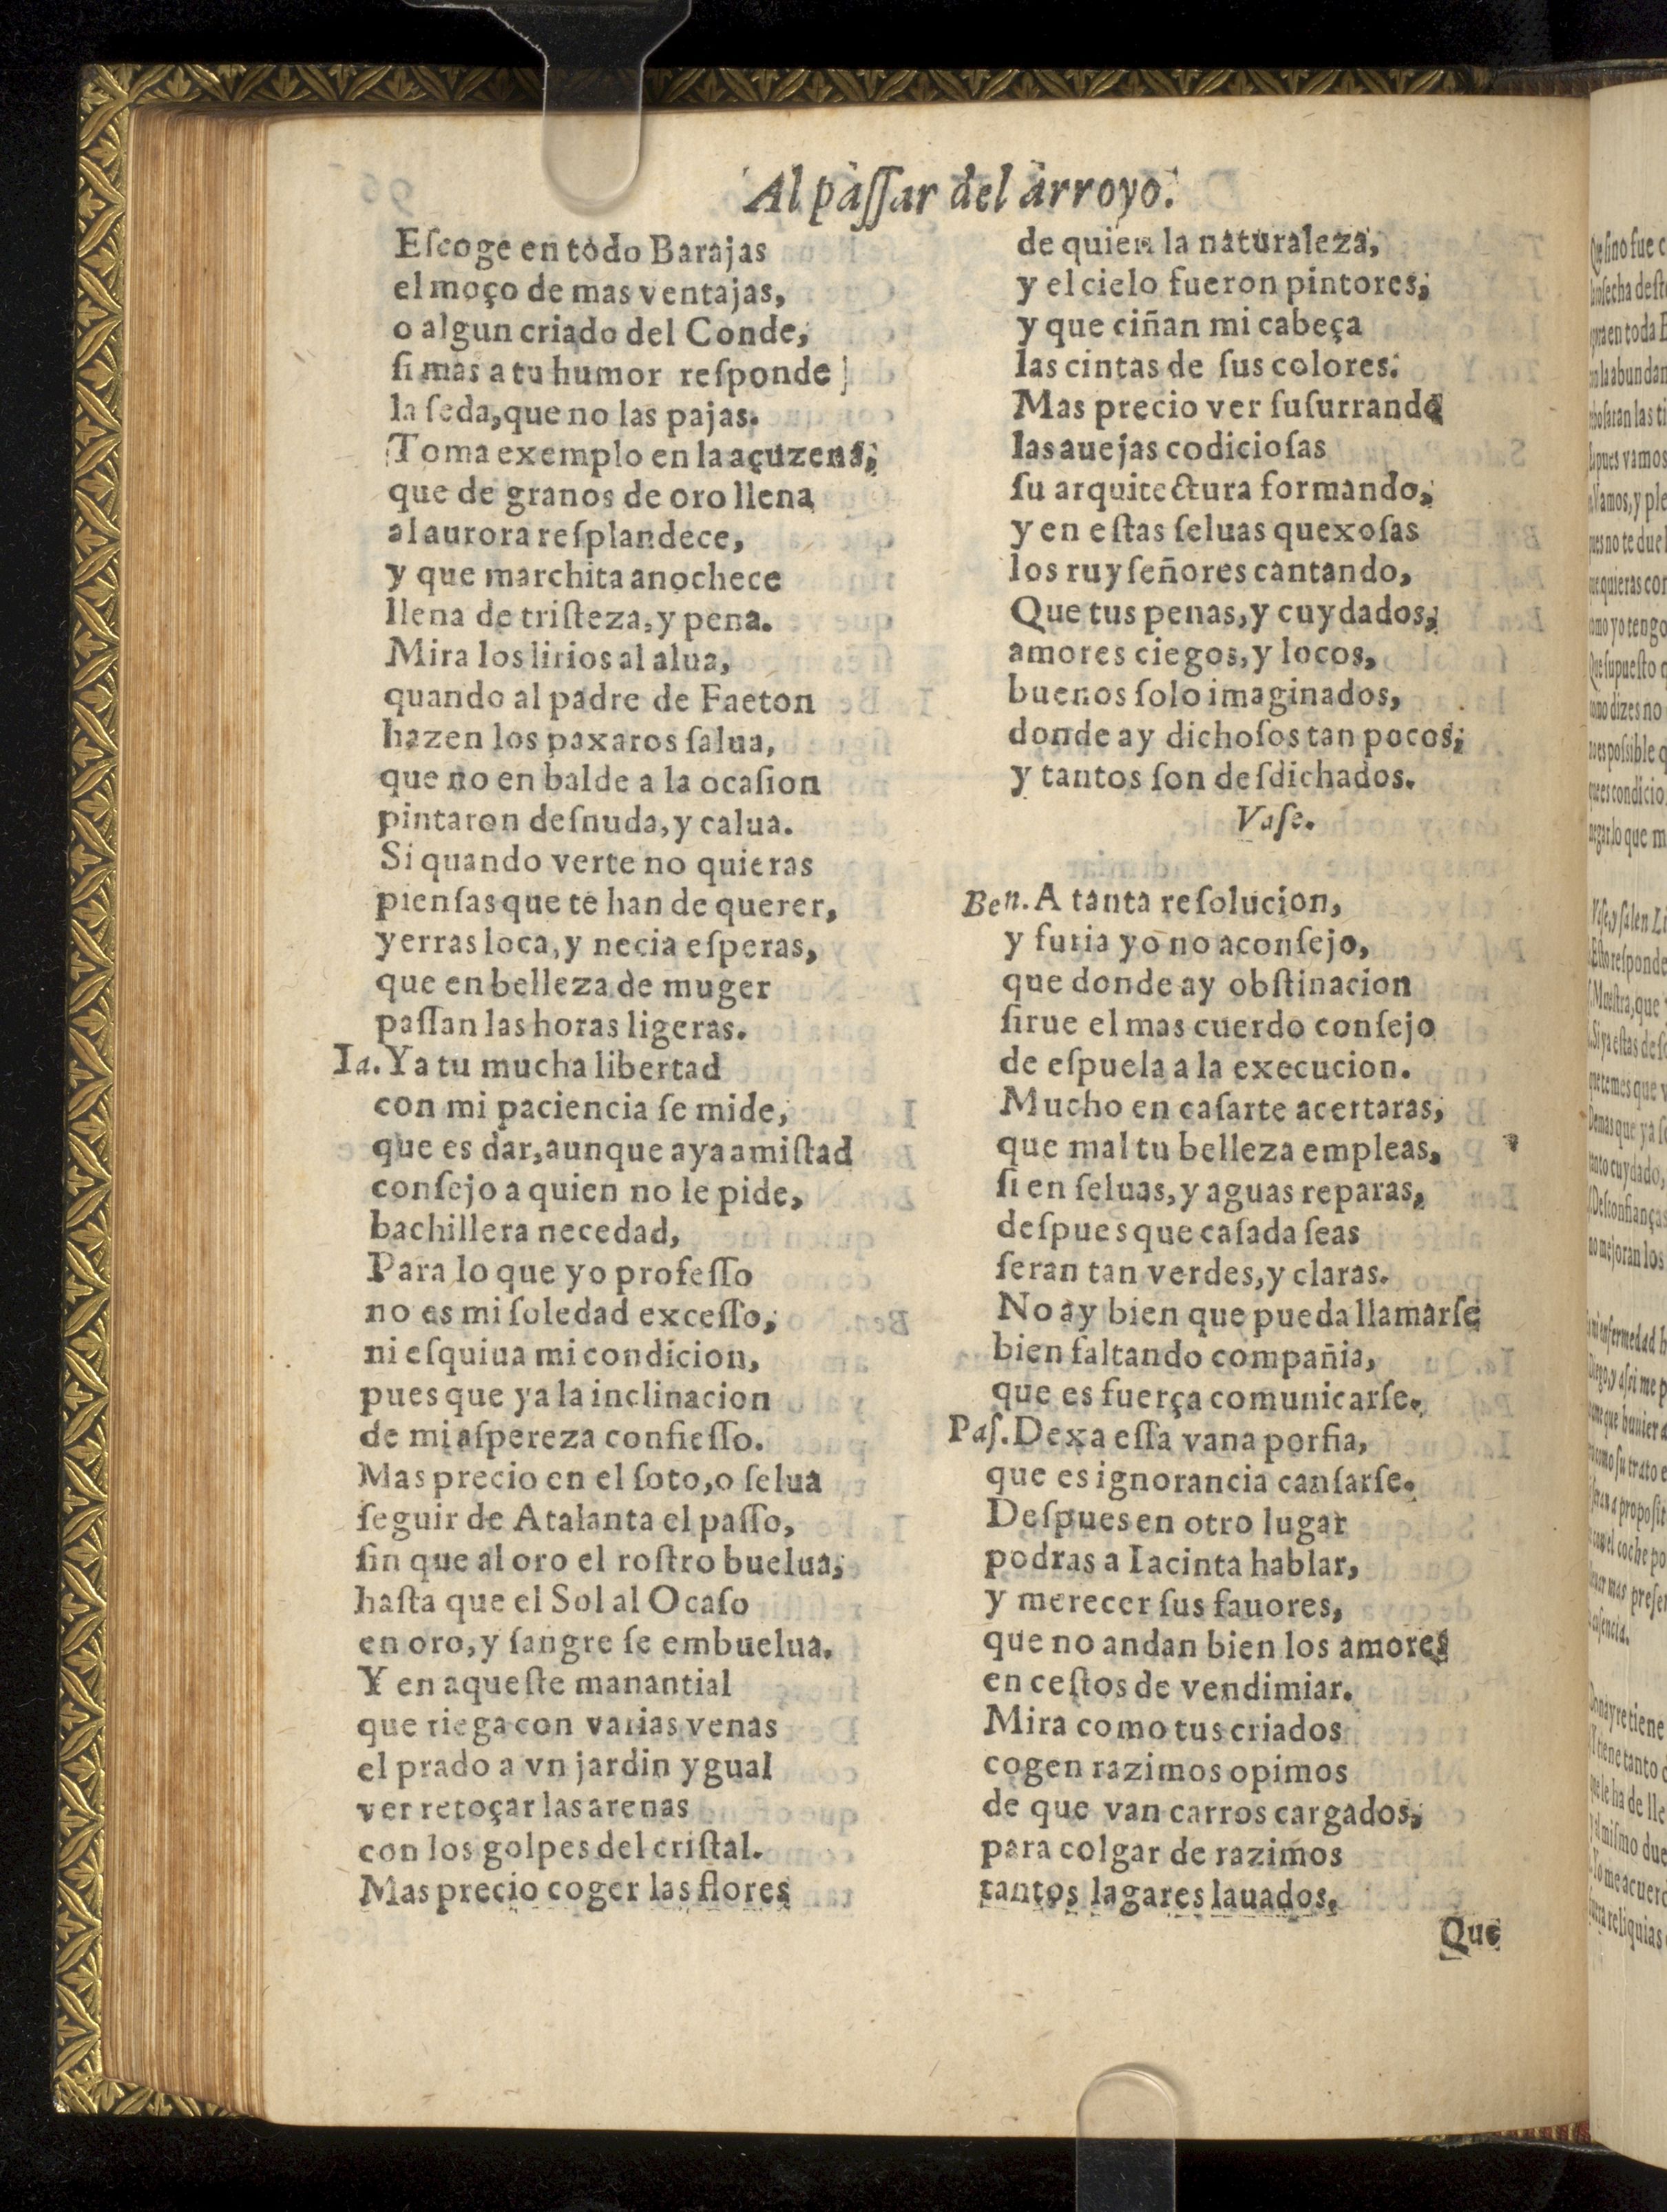 Al passar del arroyo.
Eſcoge en todo Barajas
el moço de mas ventajas,
o algun criado del Conde,
ſi mas a tu humor reſponde
la ſeda, que no las pajas.
Toma exemplo en la açuzena,
que de granos de oro llena
al aurora reſplandece,
y que marchita anochece
llena de triſteza, y pena.
Mira los lirios al alua,
quando al padre de Faeton
hazen los paxaros ſalua,
que no en balde a la ocaſion
pintaron deſnuda, y calua.
Si quando verte no quieras
pienſas que te han de querer,
yerras loca, y necia eſperas,
que en belleza de muger
paſſan las horas ligeras.
Ia. Ya tu mucha libertad
con mi paciencia ſe mide,
que es dar, aunque aya amiſtad
conſejo a quien no le pide,
bachillera necedad,
Para lo que yo profeſſo
no es mi ſoledad exceſſo,
ni eſquiua mi condicion,
pues que ya la inclinacion
de mi aſpereza confieſſo.
Mas precio en el ſoto, o ſelua
ſeguir de Atalanta el paſſo,
ſin que al oro el roſtro buelua,
haſta que el Sol al Ocaſo
en oro, y ſangre ſe embuelua.
Y en aqueſte manantial
que riega con varias venas
el prado a vn jardin ygual
ver retoçar las arenas
con los golpes del criſtal.
Mas precio coger las flores
de quien la naturaleza,
y el cielo fueron pintores,
y que ciñan mi cabeça
las cintas de ſus colores.
Mas precio ver ſuſurrando
las auejas codicioſas
ſu arquitectura formando,
y en eſtas ſeluas quexoſas
los ruyſeñores cantando,
Que tus penas, y cuydados,
amores ciegos, y locos,
buenos ſolo imaginados,
donde ay dichoſos tan pocos,
y tantos ſon deſdichados.
Vaſe.
Ben. A tanta reſolucion,
y furia yo no aconſejo,
que donde ay obſtinacion
ſirue el mas cuerdo conſejo
de eſpuela a la execucion.
Mucho en caſarte acertaras,
que mal tu belleza empleas,
ſi en ſeluas, y aguas reparas,
deſpues que caſada ſeas
ſeran tan verdes, y claras.
No ay bien que pueda llamarſe
bien faltando compañia,
que es fuerça comunicarſe.
Paſ. Dexa eſſa vana porfia,
que es ignorancia canſarſe.
Deſpues en otro lugar
podras a Iacinta hablar,
y merecer ſus fauores,
que no andan bien los amores
en ceſtos de vendimiar.
Mira como tus criados
cogen razimos opimos
de que van carros cargados,
para colgar de razimos
tantos lagares lauados.
Que